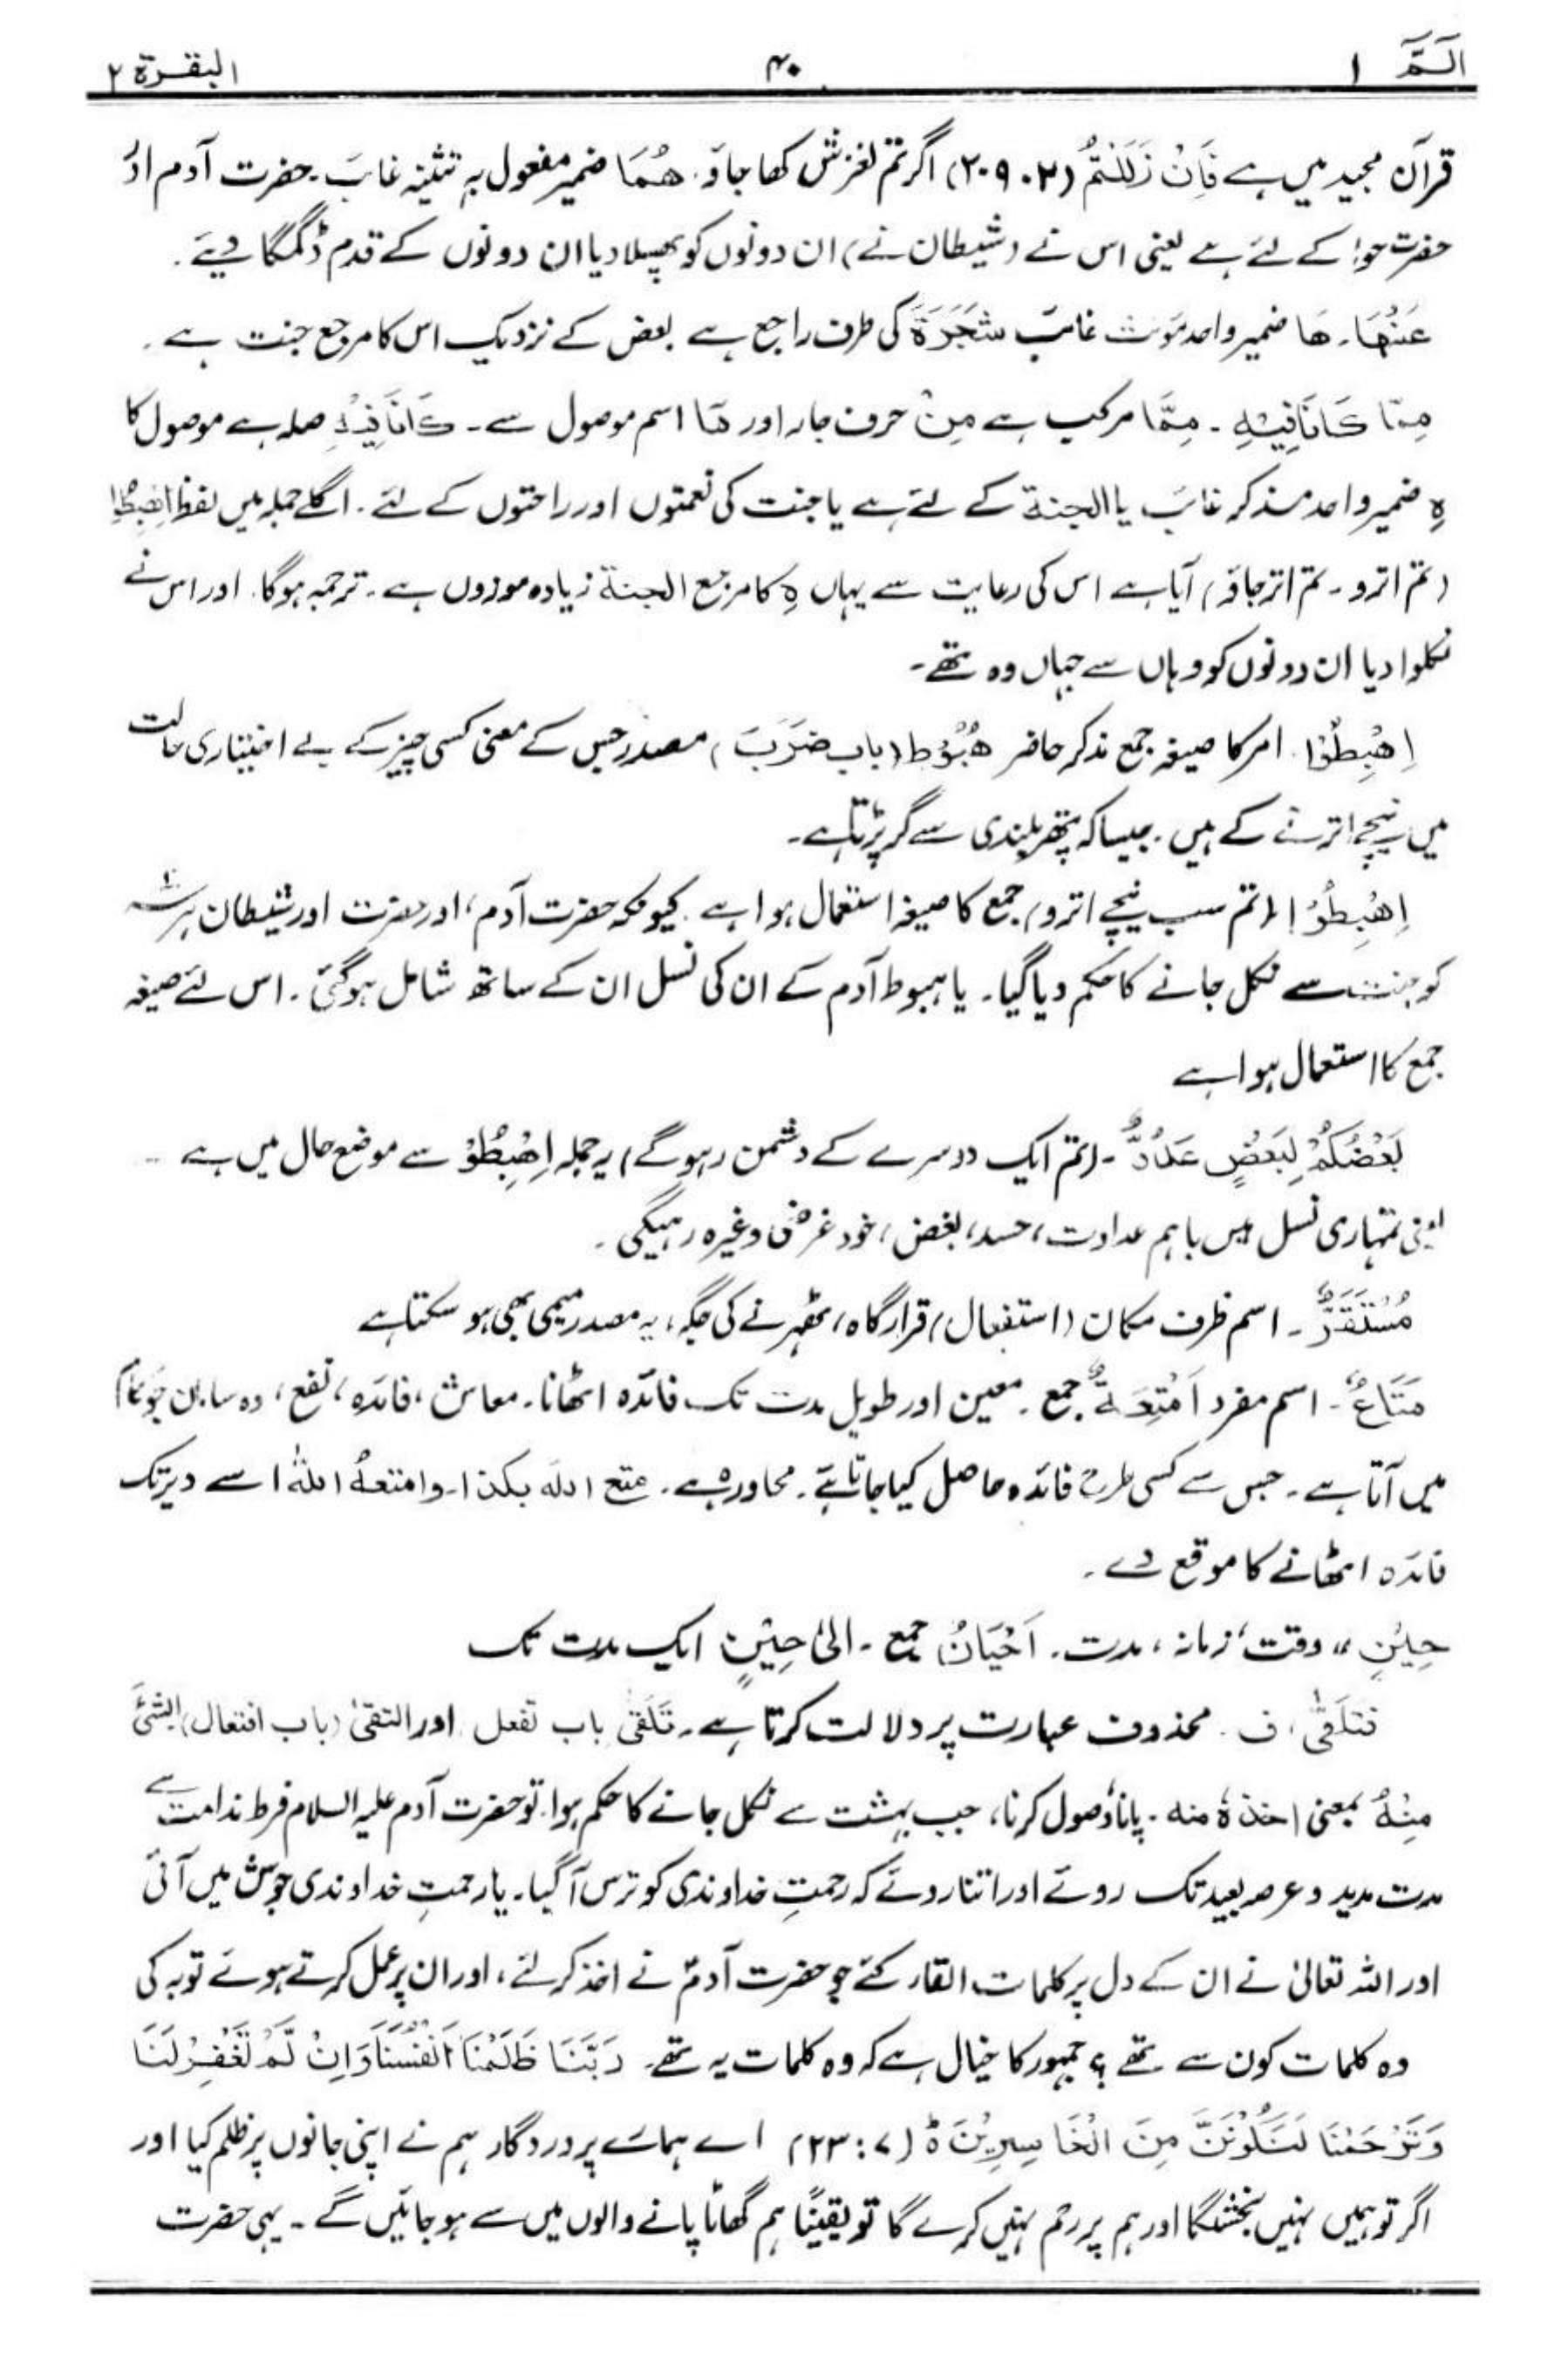 الٓمّٓ ۱ ۴۰ البقرۃ ۲
قرآن مجید میں ہے فَاِنْ زَلَلْتُمْ (۲۰۹۰۲) اگر تم لغزش کھا جاؤ۔ ھُمَا ضمیر مفعول بہ تثنیہ غائب۔ حضرت آدم اور
حضرت حوا کے لئے ہے یعنی اس نے (شیطان نے) ان دونوں کو پھسلا دیا ان دونوں کے قدم ڈگمگا دیئے۔
عَنْھَا۔ ھَا ضمیر واحد مؤنث غائب شَجَرَۃَ کی طرف راجع ہے بعض کے نزدیک اس کا مرجع جنت ہے۔
مِمَّا کَانَا فِیْہِ۔ مِمَّا مرکب ہے مِنْ حرف جار اور مَا اسم موصول سے۔ کَانَا فِیْہِ صلہ ہے موصول کا
ہِ ضمیر واحد مذکر غائب یا الجنۃ کے لئے ہے یا جنت کی نعمتوں اور راحتوں کے لئے۔ اگلے جملہ میں لفظ اِھْبِطُوْا
(تم اترو۔ تم اتر جاؤ) آیا ہے اس کی رعایت سے یہاں ہِ کا مرجع الجنۃ زیادہ موزوں ہے۔ ترجمہ ہوگا۔ اور اس نے
نکلوا دیا ان دونوں کو وہاں سے جہاں وہ تھے۔
اِھْبِطُوْا۔ امر کا صیغہ جمع مذکر حاضر ھُبُوْط (باب ضَرَبَ) مصدر جس کے معنی کسی چیز کے بے اختیاری حالت
میں نیچے اترنے کے ہیں۔ جیسا کہ پتھر بلندی سے گر پڑتا ہے۔
اِھْبِطُوْا (تم سب نیچے اترو) جمع کا صیغہ استعمال ہوا ہے۔ کیونکہ حضرت آدم، اور حضرت اور شیطان ہر سہ
کو جنت سے نکل جانے کا حکم دیا گیا۔ یا ہبوط آدم کے ان کی نسل ان کے ساتھ شامل ہوگئی۔ اس لئے صیغہ
جمع کا استعمال ہوا ہے
بَعْضُکُمْ لِبَعْضٍ عَدُوٌّ۔ (تم ایک دوسرے کے دشمن رہو گے) یہ جملہ اِھْبِطُوْ سے موضع حال میں ہے
یعنی تمہاری نسل میں باہم عداوت، حسد، بغض، خود غرضی وغیرہ رہیگی۔
مُسْتَقَرٌّ۔ اسم ظرف مکان (استفعال) قرار گاہ، ٹھہرنے کی جگہ، یہ مصدر میمی بھی ہو سکتا ہے
مَتَاعٌ۔ اسم مفرد اَمْتِعَۃٌ جمع۔ معین اور طویل مدت تک فائدہ اٹھانا۔ معاش، فائدہ، نفع، وہ سامان جو کام
میں آتا ہے۔ جس سے کسی طرح فائدہ حاصل کیا جاتا ہے۔ محاورہ ہے۔ متع اللہ بکذا۔ وامتعہُ اللہُ اسے دیر تک
فائدہ اٹھانے کا موقع دے۔
حِیْنٍ، وقت، زمانہ، مدت۔ اَحْیَانٌ جمع۔ الیٰ حِیْنٍ ایک مدت تک
فَتَلَقّٰی، ف۔ محذوف عبارت پر دلالت کرتا ہے۔ تَلَقّٰی باب تفعل اور التقیٰ (باب افتعال) الشئَ
مِنْہُ بمعنی اخذہٗ منہ۔ پانا، وصول کرنا، جب بہشت سے نکل جانے کا حکم ہوا۔ تو حضرت آدم علیہ السلام فرط ندامت سے
مدت مدید و عرصہ بعید تک روئے اور اتنا روئے کہ رحمتِ خداوندی کو ترس آگیا۔ یا رحمتِ خداوندی جوش میں آئی
اور اللہ تعالیٰ نے ان کے دل پر کلمات القار کئے جو حضرت آدمؑ نے اخذ کرلئے، اور ان پر عمل کرتے ہوئے توبہ کی
وہ کلمات کون سے تھے؟ جمہور کا خیال ہے کہ وہ کلمات یہ تھے۔ رَبَّنَا ظَلَمْنَا اَنْفُسَنَا وَاِنْ لَّمْ تَغْفِرْ لَنَا
وَتَرْحَمْنَا لَنَکُوْنَنَّ مِنَ الْخَاسِرِیْنَ ہ (۷:۲۳) اے ہمارے پروردگار ہم نے اپنی جانوں پر ظلم کیا اور
اگر تو ہمیں نہیں بخشیگا اور ہم پر رحم نہیں کرے گا تو یقینًا ہم گھاٹا پانے والوں میں سے ہو جائیں گے۔ یہی حضرت